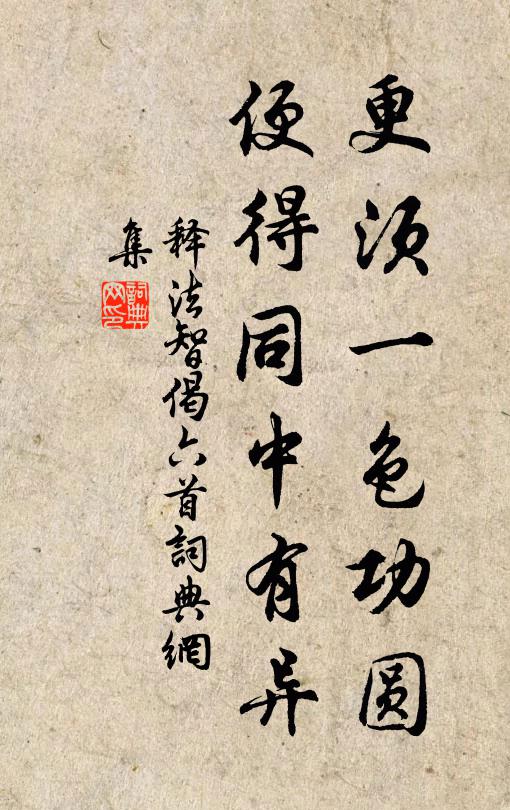 更须一色功圆
便得同中有异
释法智偈六首詞典網
集
詞典
网印